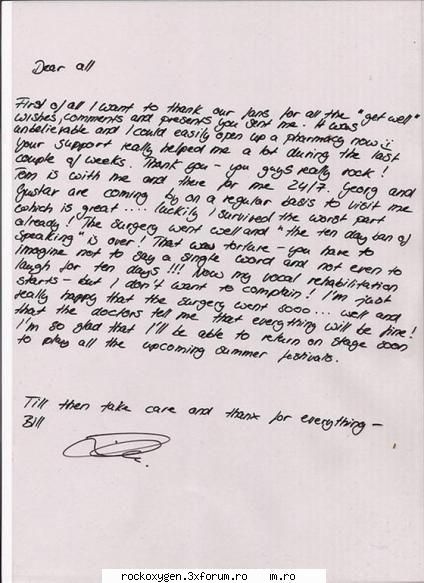 Dear all
First of all I want to thank our fans for all the "get well"
wishes, comments and presents you sent me. It was
unbelievable and I could easily open up a pharmacy now :)
Your support really helped me a lot during the last
couple of weeks. Thank you - you guys really rock!
Tom is with me and there for me 24/7. Georg and
Gustav are coming by on a regular basis to visit me
which is great .... luckily I survived the worst part
already! The surgery went well and "the ten day ban of
speaking" is over! That was torture - you have to
imagine not to say a single word and not even to
laugh for ten days!!! Now my vocal rehabilitation
starts - but I don't want to complain! I'm just
really happy that the surgery went sooo... well and
that the doctors tell me that everything will be fine!
I'm so glad that I'll be able to return on stage soon
to play all the upcoming summer festivals.
Till then take care and thanx for everything -
Bill
rockoxygen.3xforum.ro im.ro